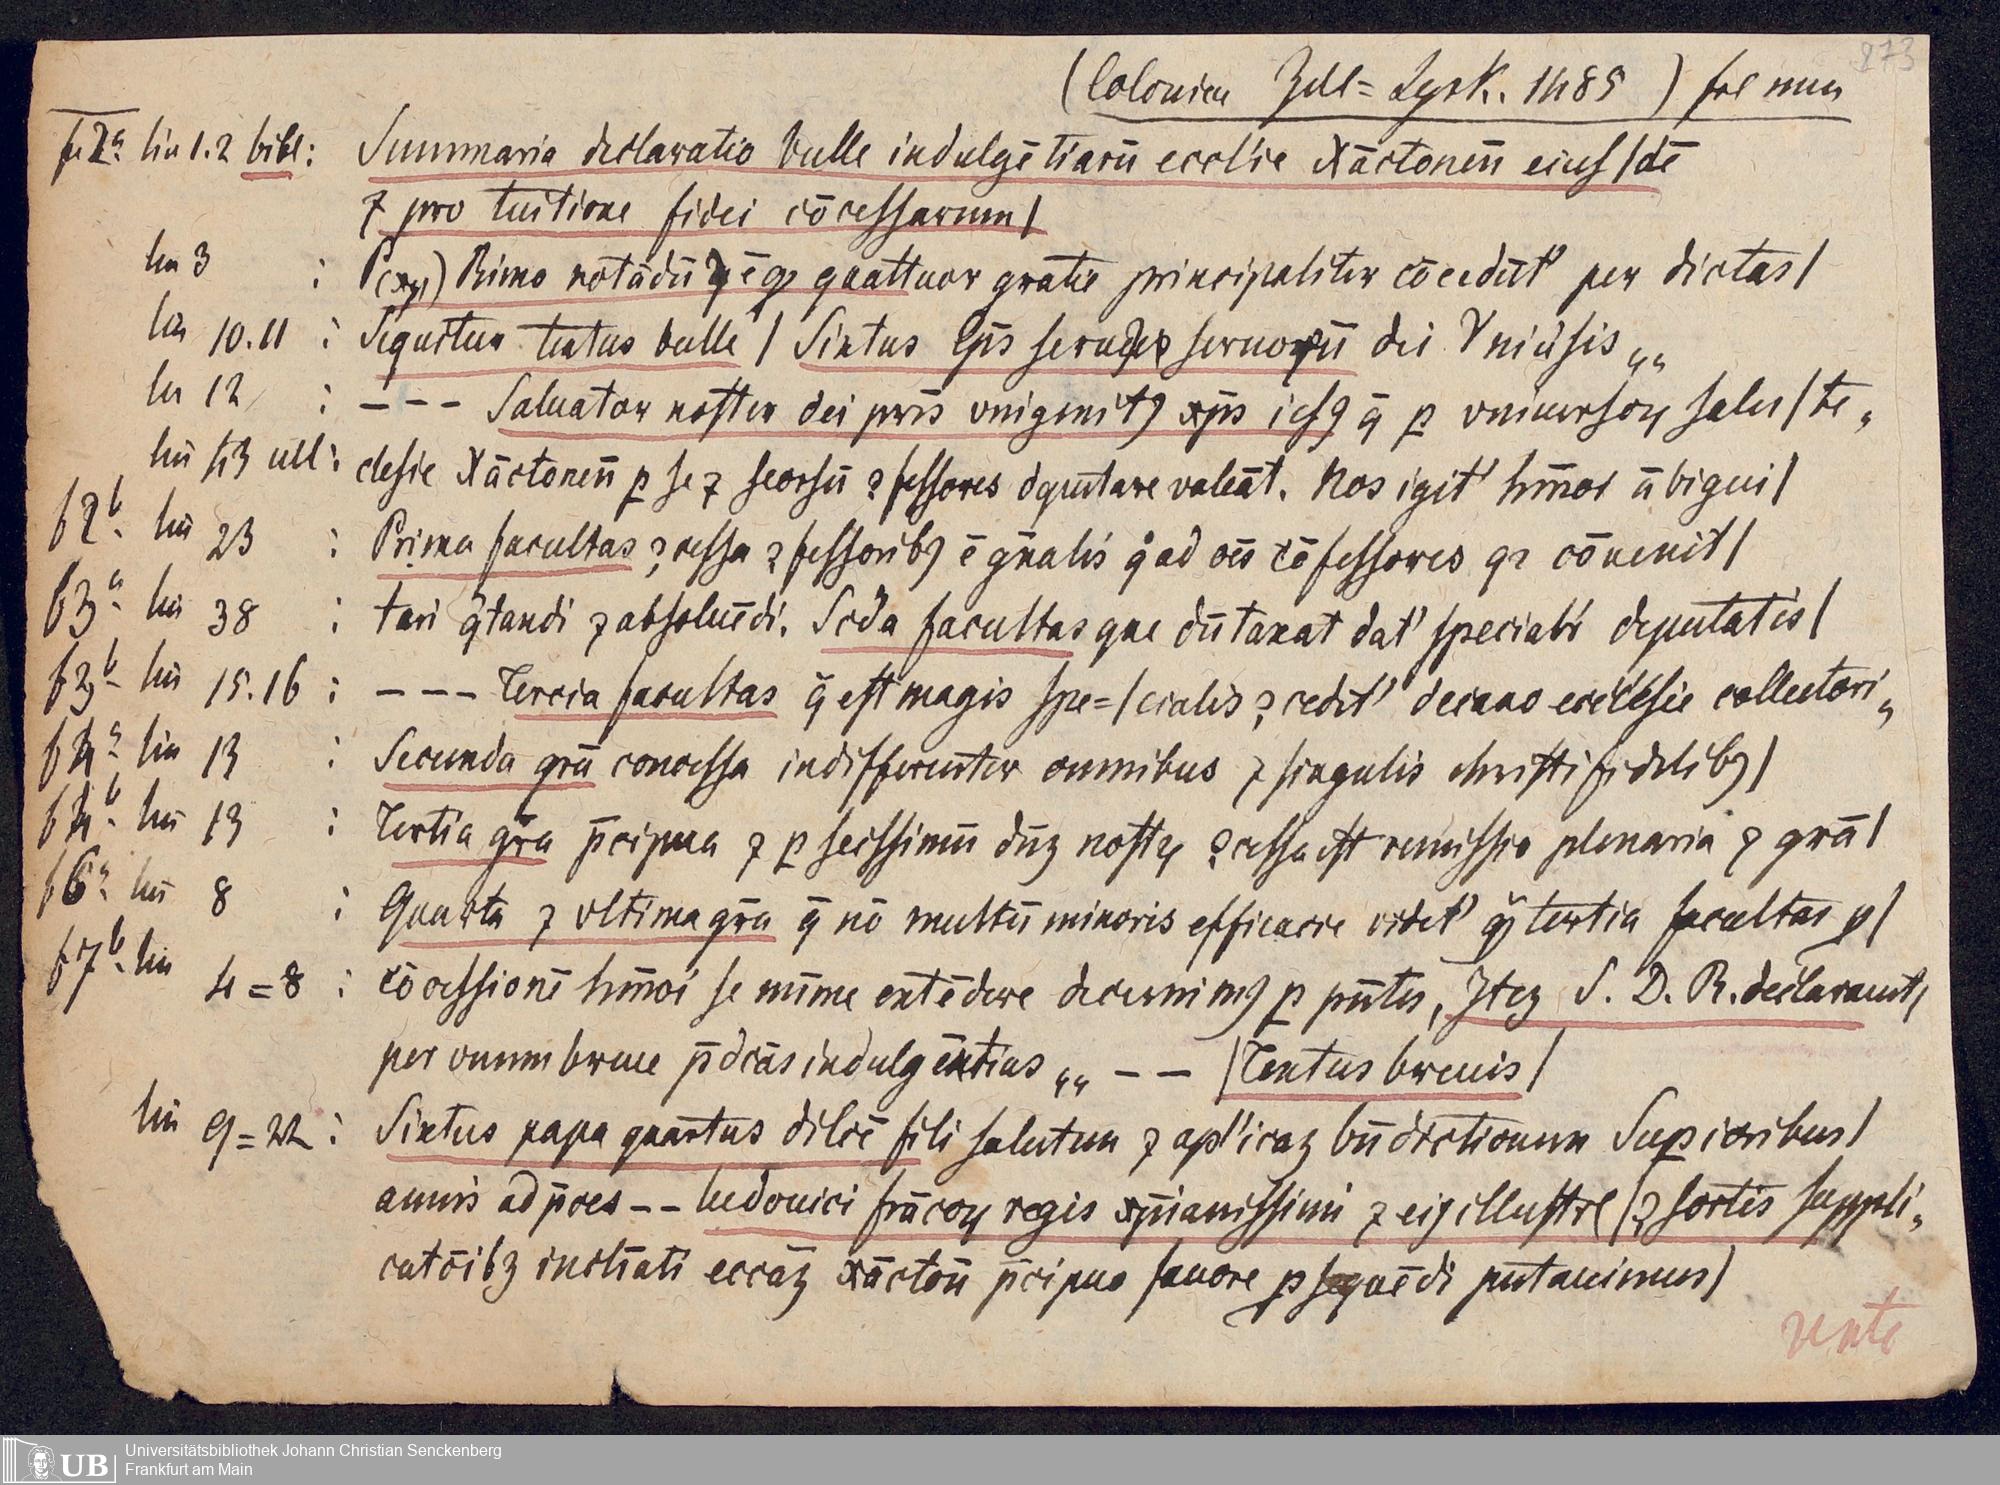 273
(Coloniae Zell=Lysk. 1485) fol min
f. 2ᵃ lin 1.2 bibl: Summaria declaratio bulle indulgētiarū eccl'ie Xāctonen̄ eius/dē
⁊ pro tuitione fidei cōcessarum/
lin 3 : P(xy) Rimo notādū ē qꝫ quattuor gratie principaliter cōcedūt' per dictas/
lin 10.11 : Sequitur textus bulle / Sixtus ep̄s seruꝰ seruoꝝ dei Vniūsis „
lin 12 : --- Saluator noster dei pr̄is vnigenitꝰ xp̄s iesꝰ q̄ ꝑ vniuersoꝝ salu/te„
lin 43 ult: clesie Xāctonen̄ ꝑ se ⁊ seorsū ꝯfessores deputare valeāt. Nos igit' hm̄oi ābigui/
f 2ᵇ. lin 23 : Prima facultas ꝯcessa ꝯfessoribꝰ ē gn̄alis q̊ ad oēs cōfessores qꝫ cōuenit/
f 3ᵃ. lin 38 : tari q̄tandi ⁊ absoluēdi. Scd̄a facultas que dūtaxat dat' specialr̄ deputatis/
f 3ᵇ lin 15.16 : --- Tercia facultas q̄ est magis spe=/cialis ꝯcedit' decano ecclesie collectori„
f 4ᵃ lin 13 : Secunda gr̄a concessa indifferenter omnibus ⁊ singulis christifidelibꝫ/
f 4ᵇ. lin 13 : Tertia gr̄a p̄cipua ⁊ ꝑ sc̄issimū dn̄ꝫ nostꝝ ꝯcessa est remissio plenaria ⁊ gr̄a/
f 6ᵃ lin 8 : Quarta ⁊ vltima gr̄a q̄ nō multū minoris efficacie videt' qꝫ tertia facultas ꝑ/
f 7ᵇ. lin 4=8 : cōcessionē hm̄oi se mīme extēdere decernimꝰ ꝑ pn̄tes, Iteꝫ S. D. R. declarauit/
per vnum breue p̄dcās indulgētias „ -- /Textus breuis/
lin 9=22 : Sixtus papa quartus dilcē fili salutem ⁊ apl'icaꝫ bn̄dictionem Supioribus/
annis ad p̄ces -- ludouici frācoꝝ regis xp̄ianissimi ⁊ eiꝰ illustre/ꝯsortis suppli„
catōibꝫ inclīati eccāꝫ xāctoñ p̄cipuo fauore ꝑsequēdi putauimus/
vente
UB
Universitätsbibliothek Johann Christian Senckenberg
Frankfurt am Main